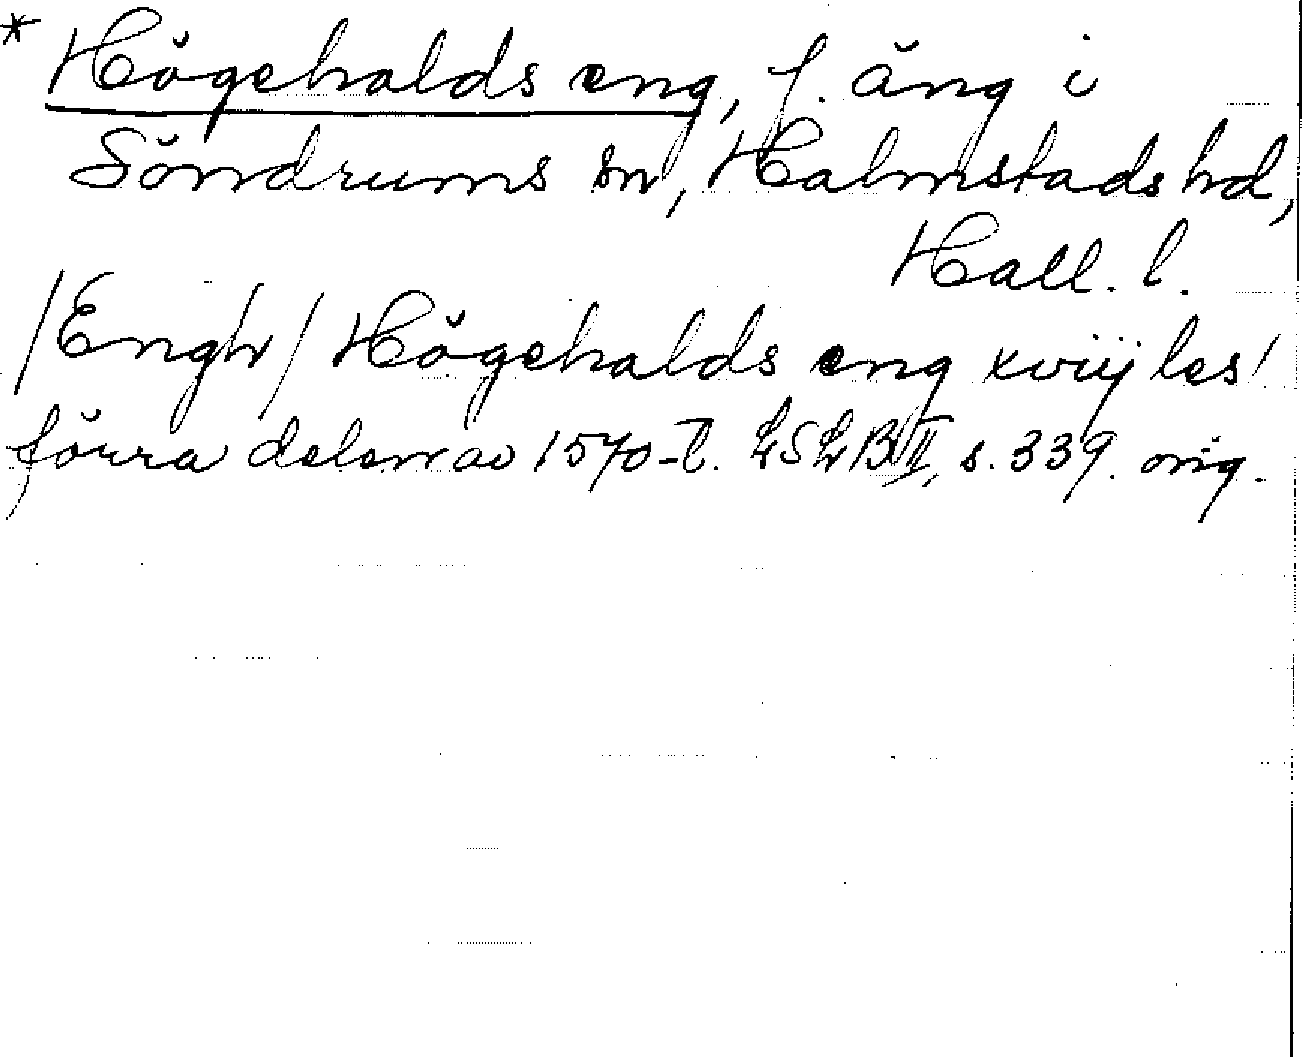 * Högehalds eng, f. äng i
Söndrums sn, Halmstads hd,
Hall. l.
/Engh/ Högehalds eng xviij les/
förra delen av 1570-t. LSLB II, s. 339. orig.